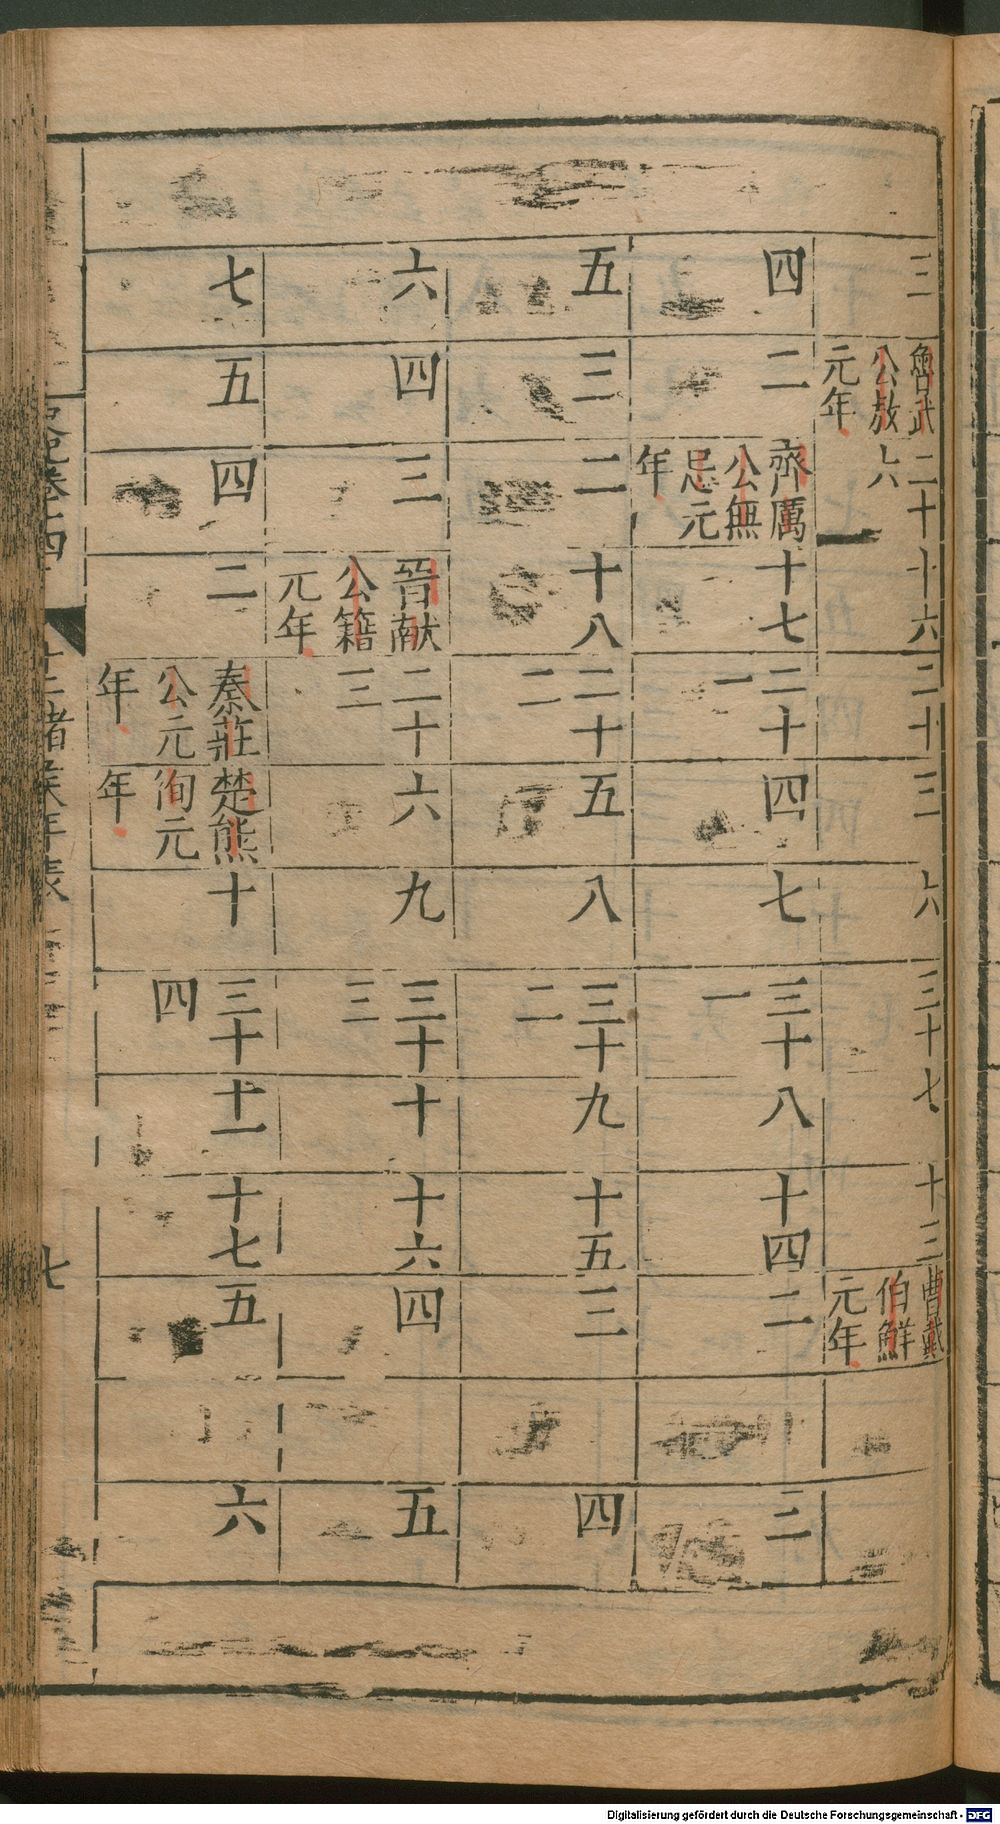 三
魯武
公敖
元年
二十
六
十六
二十
三
六
三十
七
十三
曹戴
伯鮮
元年
四
二
齊厲
公無
忌元
年
十七
二十
一
四
七
三十
一
八
十四
二
三
五
三
二
十八
二十
二
五
八
三十
二
九
十五
三
四
六
四
三
晉献
公籍
元年
二十
三
六
九
三十
三
十
十六
四
五
七
五
四
二
秦莊
公元
年
楚熊
徇元
年
十
三十
四
十一
十七
五
六
卷十四
十二諸侯年表
七
Digitalisierung gefördert durch die Deutsche Forschungsgemeinschaft - DFG